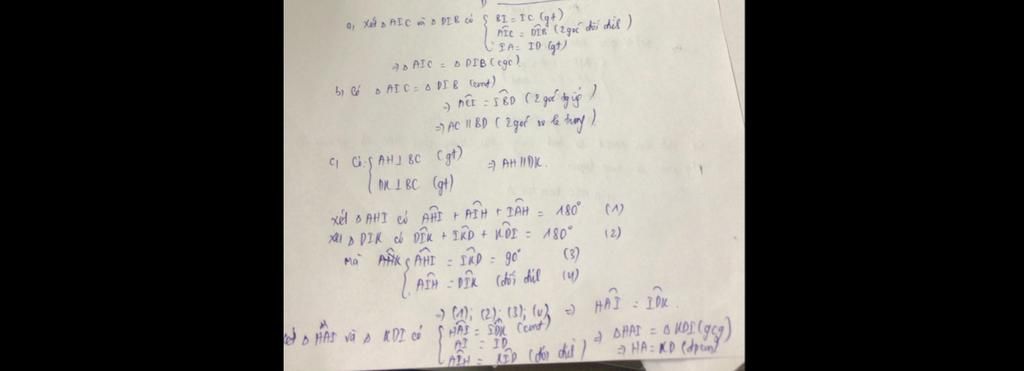 a, Xét △AIC và △DIB có { BI = IC (gt)
AIC^ = DIB^ (2 góc đối đỉnh)
IA = ID (gt)
⇒ △AIC = △DIB (cgc)
b, Có △AIC = △DIB (cmt)
⇒ ACI^ = IBD^ (2 góc tg ứng)
⇒ AC // BD (2 góc so le trong)
c, Có { AH ⊥ BC (gt) ⇒ AH // DK.
DK ⊥ BC (gt)
Xét △AHI có AHI^ + AIH^ + IAH^ = 180° (1)
Xét △DIK có DIK^ + IKD^ + KDI^ = 180° (2)
Mà { AHI^ = IKD^ = 90° (3)
AIH^ = DIK^ (đối đỉnh) (4)
⇒ (1); (2); (3); (4) ⇒ HAI^ = IDK^.
Xét △HAI và △KDI có { HAI^ = IDK^ (cmt)
AI = ID
AIH^ = KID^ (đối đỉnh)
⇒ △HAI = △KDI (gcg)
⇒ HA = KD (đpcm)